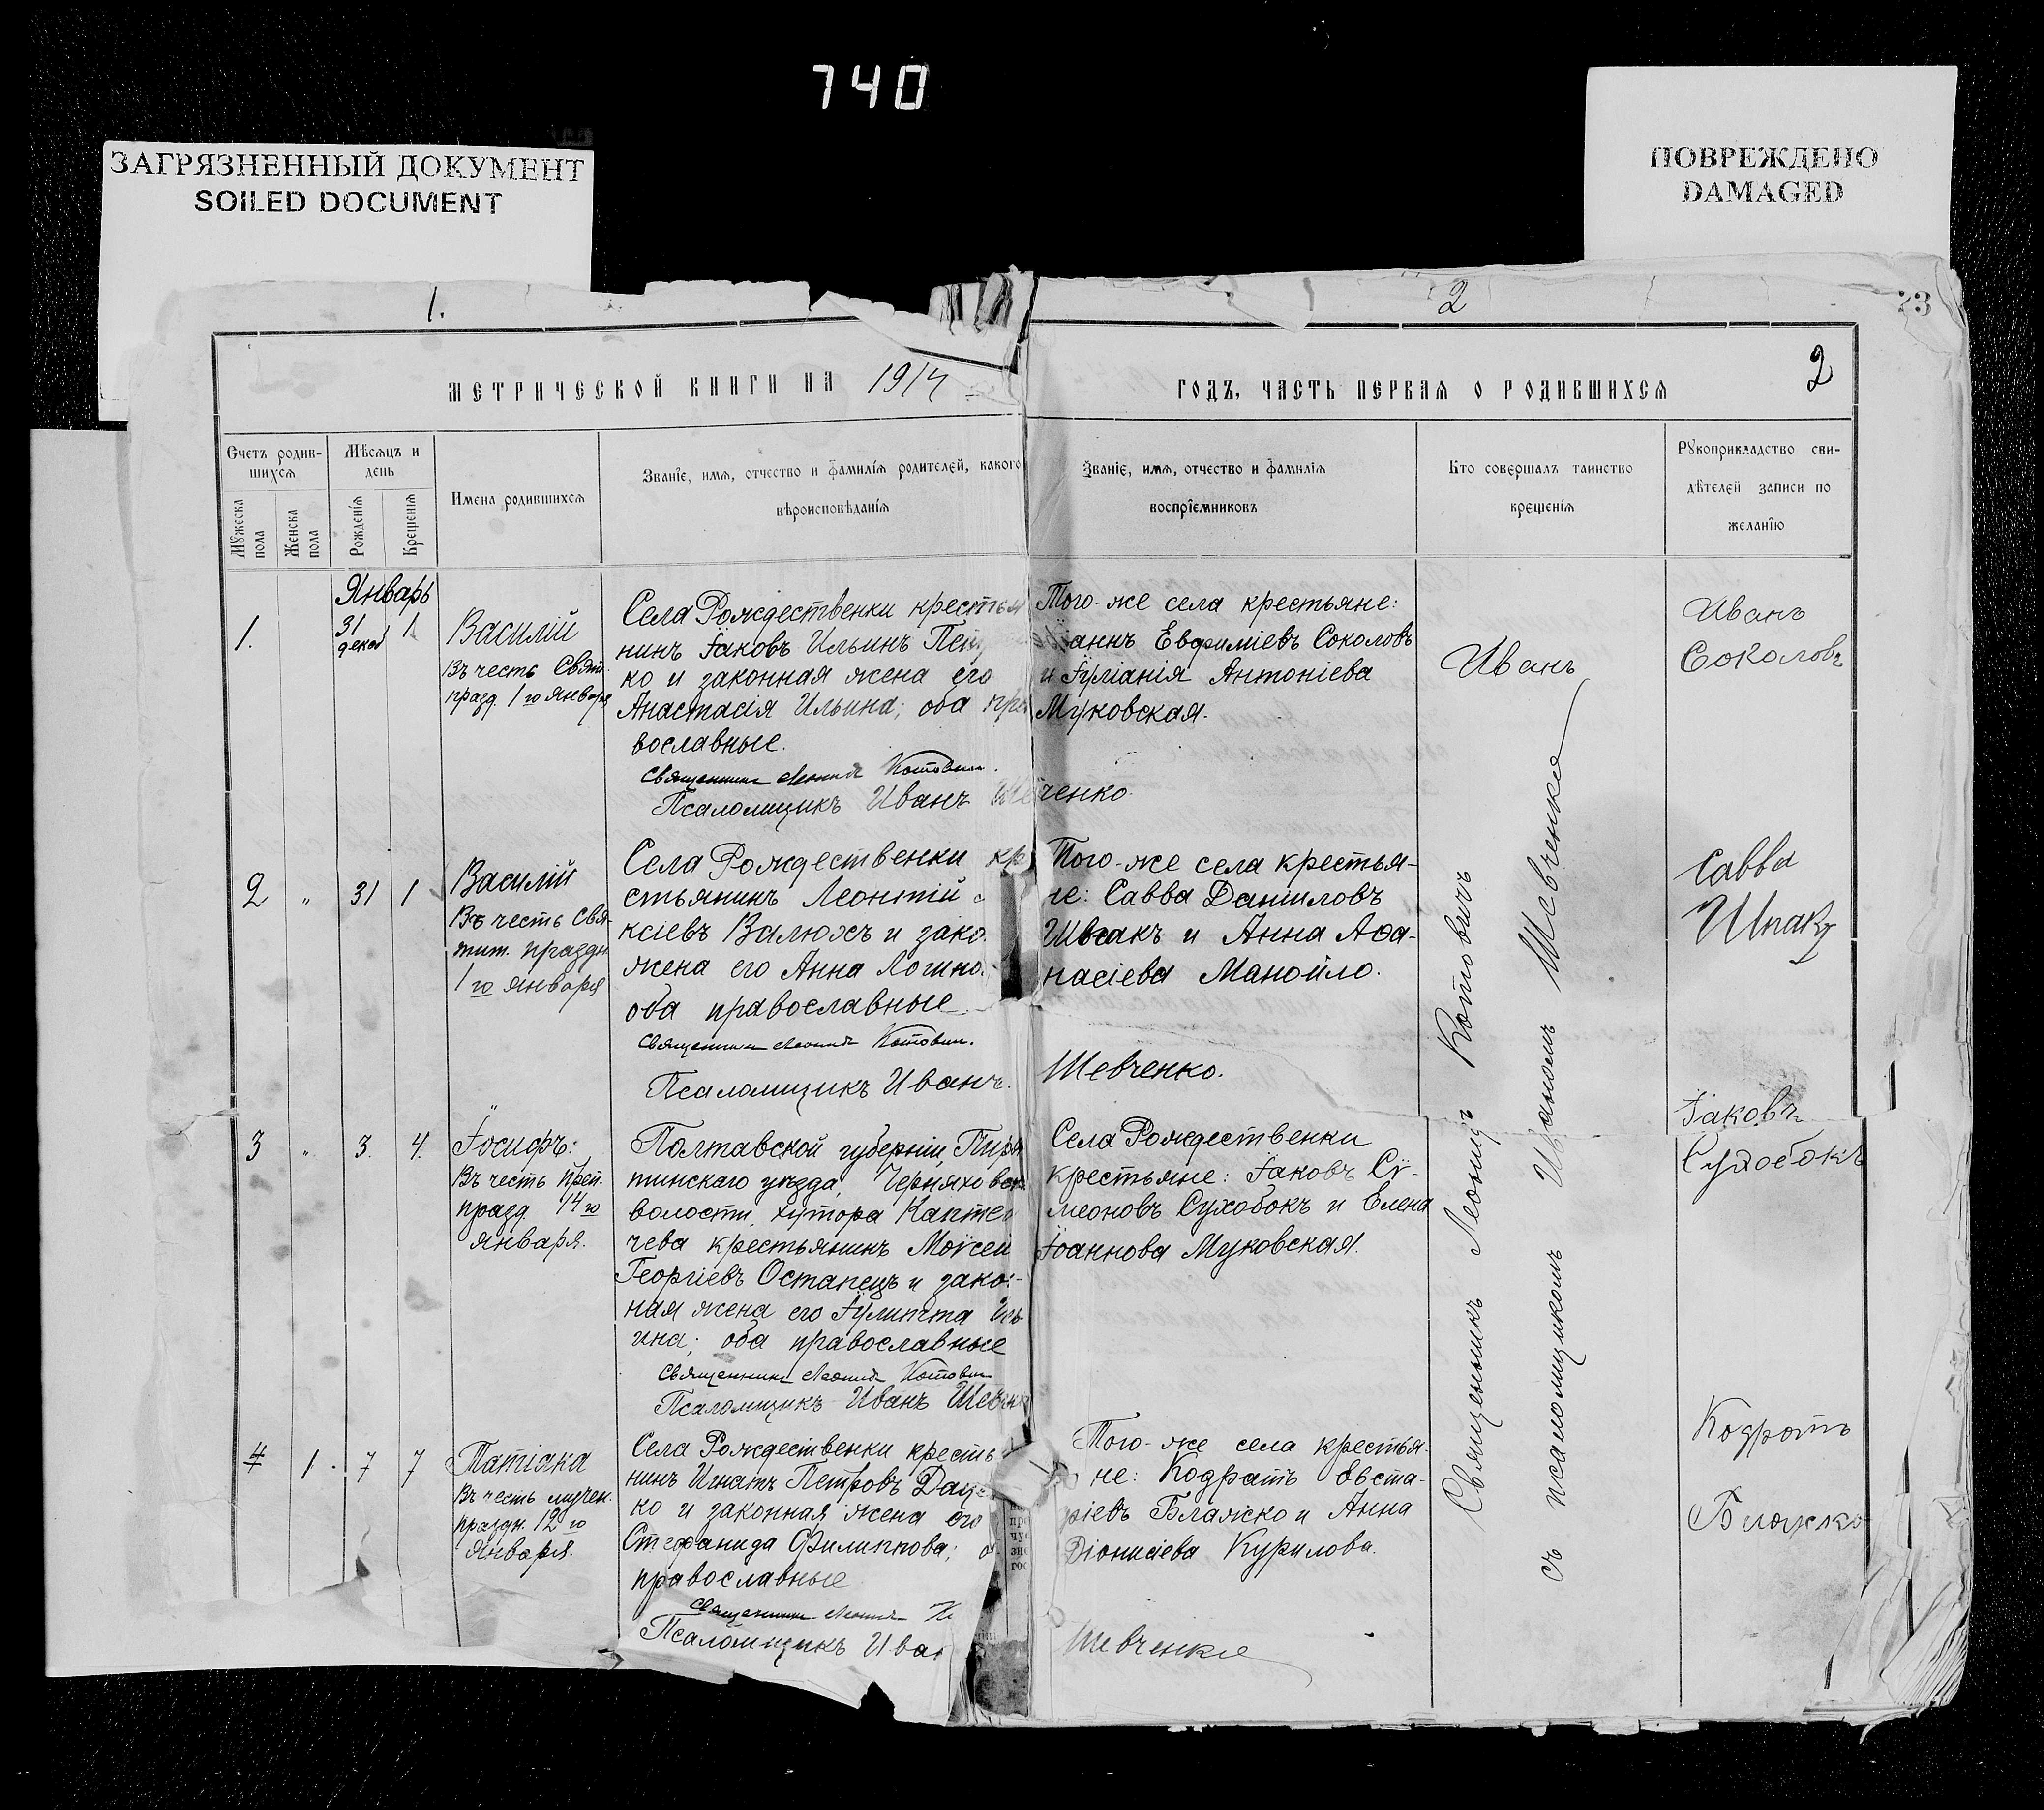 740
ЗАГРЯЗНЕННЫЙ ДОКУМЕНТ
SOILED DOCUMENT
ПОВРЕЖДЕНО
DAMAGED
1.
2
73
МЕТРИЧЕСКОЙ КНИГИ НА 1914
ГОДЪ, ЧАСТЬ ПЕРВАЯ О РОДИВШИХСЯ
2
Счетъ родив-
шихся
Мужеска
пола
Женска
пола
Мѣсяцъ и
день
Рожденія
Крещенія
Имена родившихся
Званіе, имя, отчество и фамилія родителей, какого
вѣроисповѣданія
Званіе, имя, отчество и фамилія
воспріемниковъ
Кто совершалъ таинство
крещенія
Рукоприкладство сви-
дѣтелей записи по
желанію
Январь
1.
31
декаб
1
Василій
Въ честь Свят.
празд. 1го Января
Села Рождественки крестья
нинъ Іаковъ Ильинъ
ко и законная жена его
Анастасія Ильина; оба пра
вославные.
Священникъ Леонидъ Котович.
Псаломщикъ Иванъ Шевченко.
Того-же села крестьяне:
Іоаннъ Евфиміевъ Соколовъ
и Іуліанія Антоніева
Муковская.
Иванъ
Иванъ
Соколовъ
2
"
31
1
Василій
Въ честь Свя-
тит. праздн.
1го Января
Села Рождественки кр
стьянинъ Леонтій
ксіевъ Валюхъ и зако
жена его Анна Логино
оба православные
Священникъ Леонидъ Котович.
Псаломщикъ Иванъ Шевченко.
Того-же села крестья-
не: Савва Даниловъ
Шпакъ и Анна Афа-
насіева Манойло.
Савва
Шпакъ
3
"
3.
4.
Іосифъ:
Въ честь Преп.
празд. 14го
января.
Полтавской губерніи, Пиря
тинскаго уѣзда, Черняховск
волости, хутора Каптео
чева крестьянинъ Моѵсей
Георгіевъ Остапецъ и зако-
ная жена его Іулитта Иль
ина; оба православные
Священникъ Леонидъ Котович
Псаломщикъ Иванъ Шевченк
Села Рождественки
крестьяне: Іаковъ Сѵ-
меоновъ Сухобокъ и Елена
Іоаннова Муковская.
Іаковъ
Сухобокъ
4
1.
7
7
Татіана
Въ честь мучен.
праздн. 12го
Января.
Села Рождественки кресть
нинъ Игнатъ Петровъ Даце
ко и законная жена его
Стефанида Филиппова; о
православные
Священникъ Леонидъ К
Псаломщикъ Иван Шевченко
Того-же села крестья-
не: Кодратъ Евста-
фіевъ Блажко и Анна
Діонисіева Курилова.
Кодратъ
Блажко
Священникъ Леонидъ Котовичъ
съ псаломщикомъ Иваномъ Шевченко